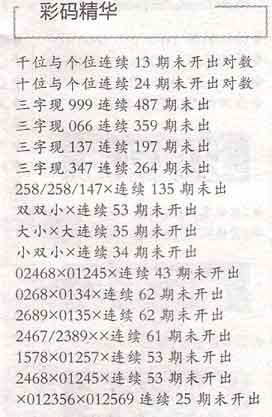 彩码精华
千位与个位连续 13 期未开出对数
十位与个位连续 24 期未开出对数
三字现 999 连续 487 期未出
三字现 066 连续 359 期未出
三字现 137 连续 197 期未出
三字现 347 连续 264 期未出
258/258/147×连续 135 期未出
双双小×连续 53 期未开出
大小×大连续 35 期未开出
小双小×连续 34 期未开出
02468×01245×连续 43 期未开出
0268×0134×连续 62 期未开出
2689×0135×连续 62 期未开出
2467/2389××连续 61 期未开出
1578×01257×连续 53 期未开出
2468×01245×连续 53 期未开出
×012356×012569 连续 25 期未开出